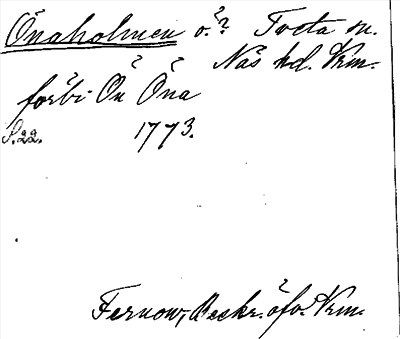 Önaholmen ö.? Tveta sn.
Näs hd. Vrm.
förbi Ön Öna
S. 22. 1773.
Fernow, Beskr. öfv. Vrm.